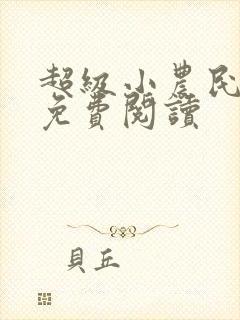 超级小農民
免費閱讀
貝丘